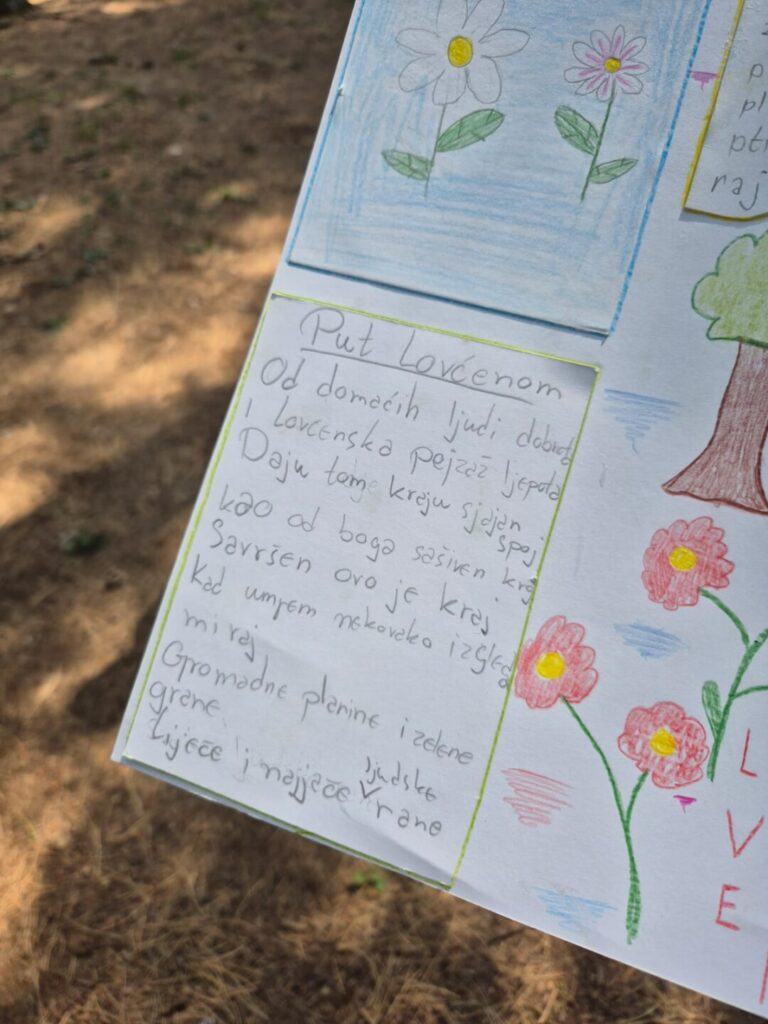 Put Lovćenom
Od domaćih ljudi dobrota
i lovćenska pejzaž ljepota
Daju tome kraju sjajan
spoj
kao od boga sašiven kraj
Savršen ovo je kraj
Kad umrem nekovako izgleda
mi raj
Gromadne planine i zelene
grane
Liječe i najjače ljudske
rane
p
pl
pti
raj
L
V
E